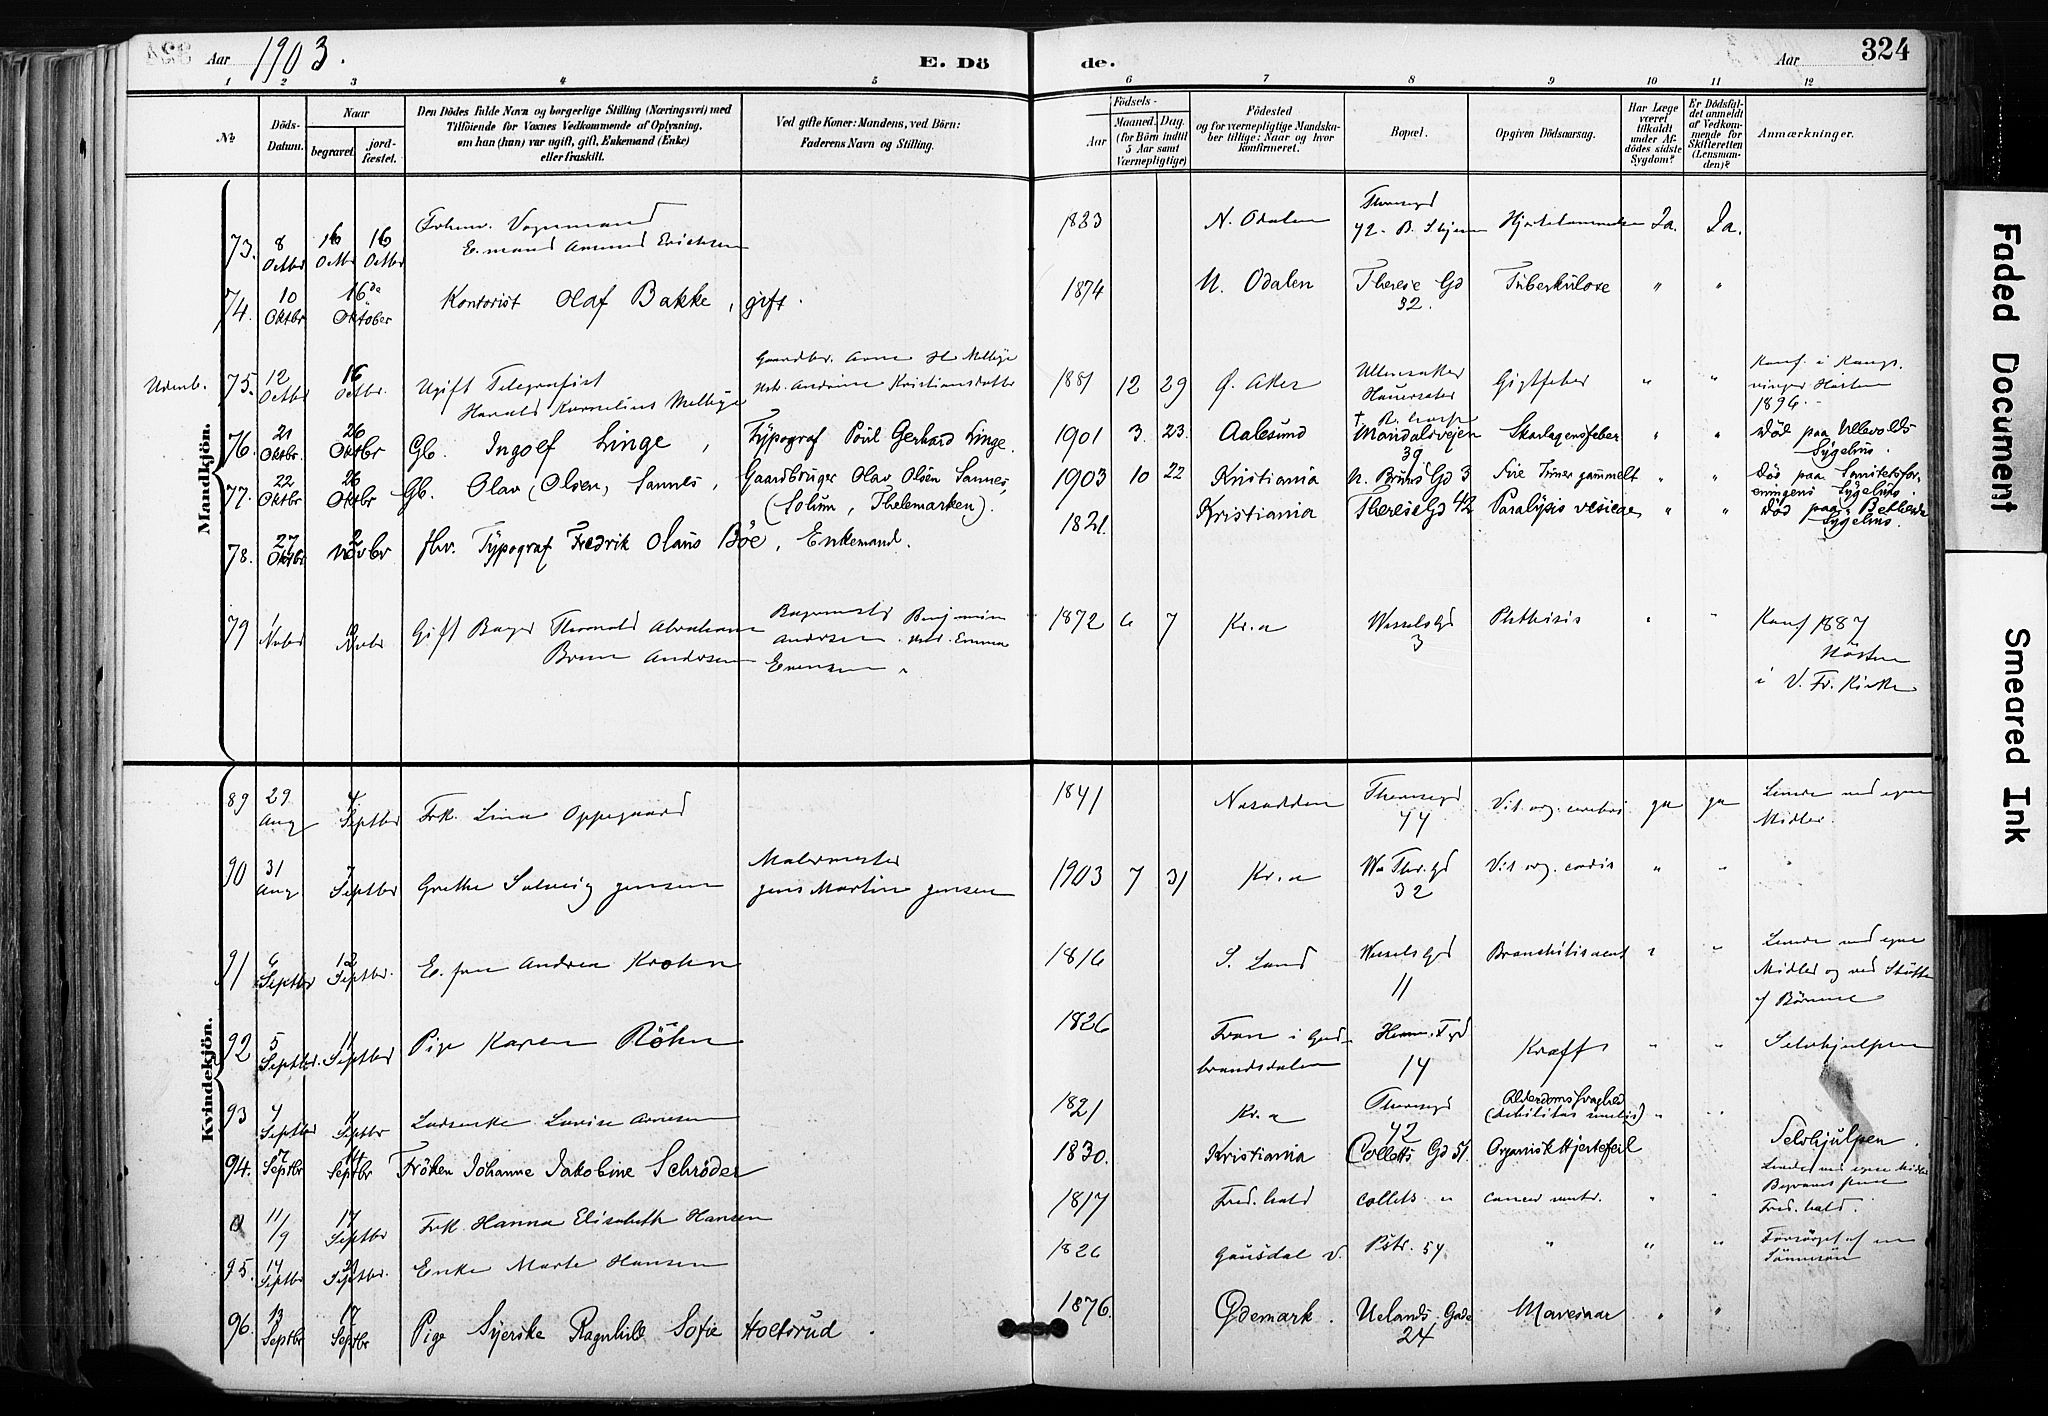 Aar 1903.
E. Dö
de.
Aar
324
1 2 3 4 5 6 7 8 9 10 11 12
No
Döds-Datum.
Naar
begravet.
jord-fæstet.
Den Dödes fulde Navn og borgerlige Stilling (Næringsvei) med
Tilföiende for Voxnes Vedkommende af Oplysning,
om han (hun) var ugift, gift, Enkemand (Enke)
eller fraskilt.
Ved gifte Koner: Mandens, ved Börn:
Faderens Navn og Stilling.
Födsels-
Aar
Maaned. Dag.
(for Börn indtil
5 Aar samt
Værnepligtige)
Födested
og for værnepligtige Mandska-
ber tillige: Naar og hvor
konfirmeret.
Bopæl.
Opgiven Dödsaarsag.
Har Læge
været
tilkaldt
under Af-
dödes sidste
Sygdom?
Er Dödsfal-
det anmeldt
af Vedkom-
mende for
Skifteretten
(Lensman-
den)?
Anmærkninger.
Mandkjön.
73. 8 Octbr 16 Octbr 16 Octbr Forhenv. Vognmand E.mand Amund Erichsen 1823 N. Odalen Theresegd 42 Ja. Ja.
74. 10 Oktbr 16de Oktober Kontorist Olaf Bakke, gift. 1874 N. Odalen Therese Gd 32. Tuberkulose " "
Udenb. 75. 12 Octbr 16 Octbr. Ugift Telegrafist Harald Kornelius Melbye Gaardbr. Arne H Melbye Andrine Kristiansdatter 1881 12 29 Ø. Aker Ullensaker Gigtfeber " " Konf. i Kongsvinger Høsten 1896.
76. 21 Oktbr. 26 Oktbr Gb. Ingolf Linge, Typograf Poul Gerhard Linge. 1901 3. 23. Aalesund Mandalsvejen 39 Skarlagensfeber " " Död paa Ullevolds Sygehus.
77. 22 Oktbr 26 Oktbr Gb. Olav (Olsen) Sannes, Gaardbruger Olav Olsen Sannes, (Solum, Thelemarken). 1903 10 22 Kristiania N. Bruns Gd 3 Fire Timer gammelt " " Död paa Sanitetsforeningens Sygehus.
78. 27 Oktbr 2 Novbr fhv. Typograf Fredrik Olaus Böe, Enkemand. 1821. Kristiania Therese Gd 42 Paralysis vesicae " " Död paa Sygehus.
79 1 Novbr Novbr Gift Bager Thorvald Abraham Andersen Bagermester Benjamin Andersen Emma Evensen 1872 6 7 Kr.a Wesselsgd 3 Phthisis " " Konf 1887 Hösten i V. Fr. Kirke
Kvindekjön.
89 29 Aug 4 Septbr Frk. Lina Oppegaard 1841 Nesodden Theresegd 44 Vit. org. cerebri ja ja Levede ved egne Midler.
90 31 Aug 7 Septbr Grethe Solveig Jensen Malermester Jens Martin Jensen 1903 7 31 Kr.a 32 Vit org. cordis " "
91 6 Septbr 12 Septbr. E. fru Andrea Krohn 1816 S. Land Wessels gd 11 Bronchitis acut " " Levede ved egne Midler og ved Stötte af Börnene
92 5 Septbr. 11 Septbr Pige Karen Röhn 1826 Fron i Gudbrandsdalen 14 Kræft " " Selvhjulpen
93 4 Septbr Septbr Ladsenke Lovise Arnesen 1821 Kr.a Theresegd 42 Alderdomssvaghed (debilitas senilis) " "
94. 7 Septbr 14 Septbr Fröken Johanne Jakobine Schröder 1830. Kristiania Colletts Gd 51. Organisk Hjertefeil Selvhjulpen.
11/9 17 Septbr Frk. Hanna Elisabeth Hansen 1817 Fred.hald Collets " cancer ventr. " " Levede ved egne Midler Fred.hald.
95. 17 Septbr 21 Septbr. Enke Marte Hansen 1826 Gausdal V. Pstr. 54 " " " Forsörget af en Sönnesön
96. 13 Septbr 17 Septbr Pige Syerske Ragnhild Sofie Holtsrud. 1876. Ødemark. Uelands Gade 24 Mavesaar " "
Faded Document
Smeared Ink